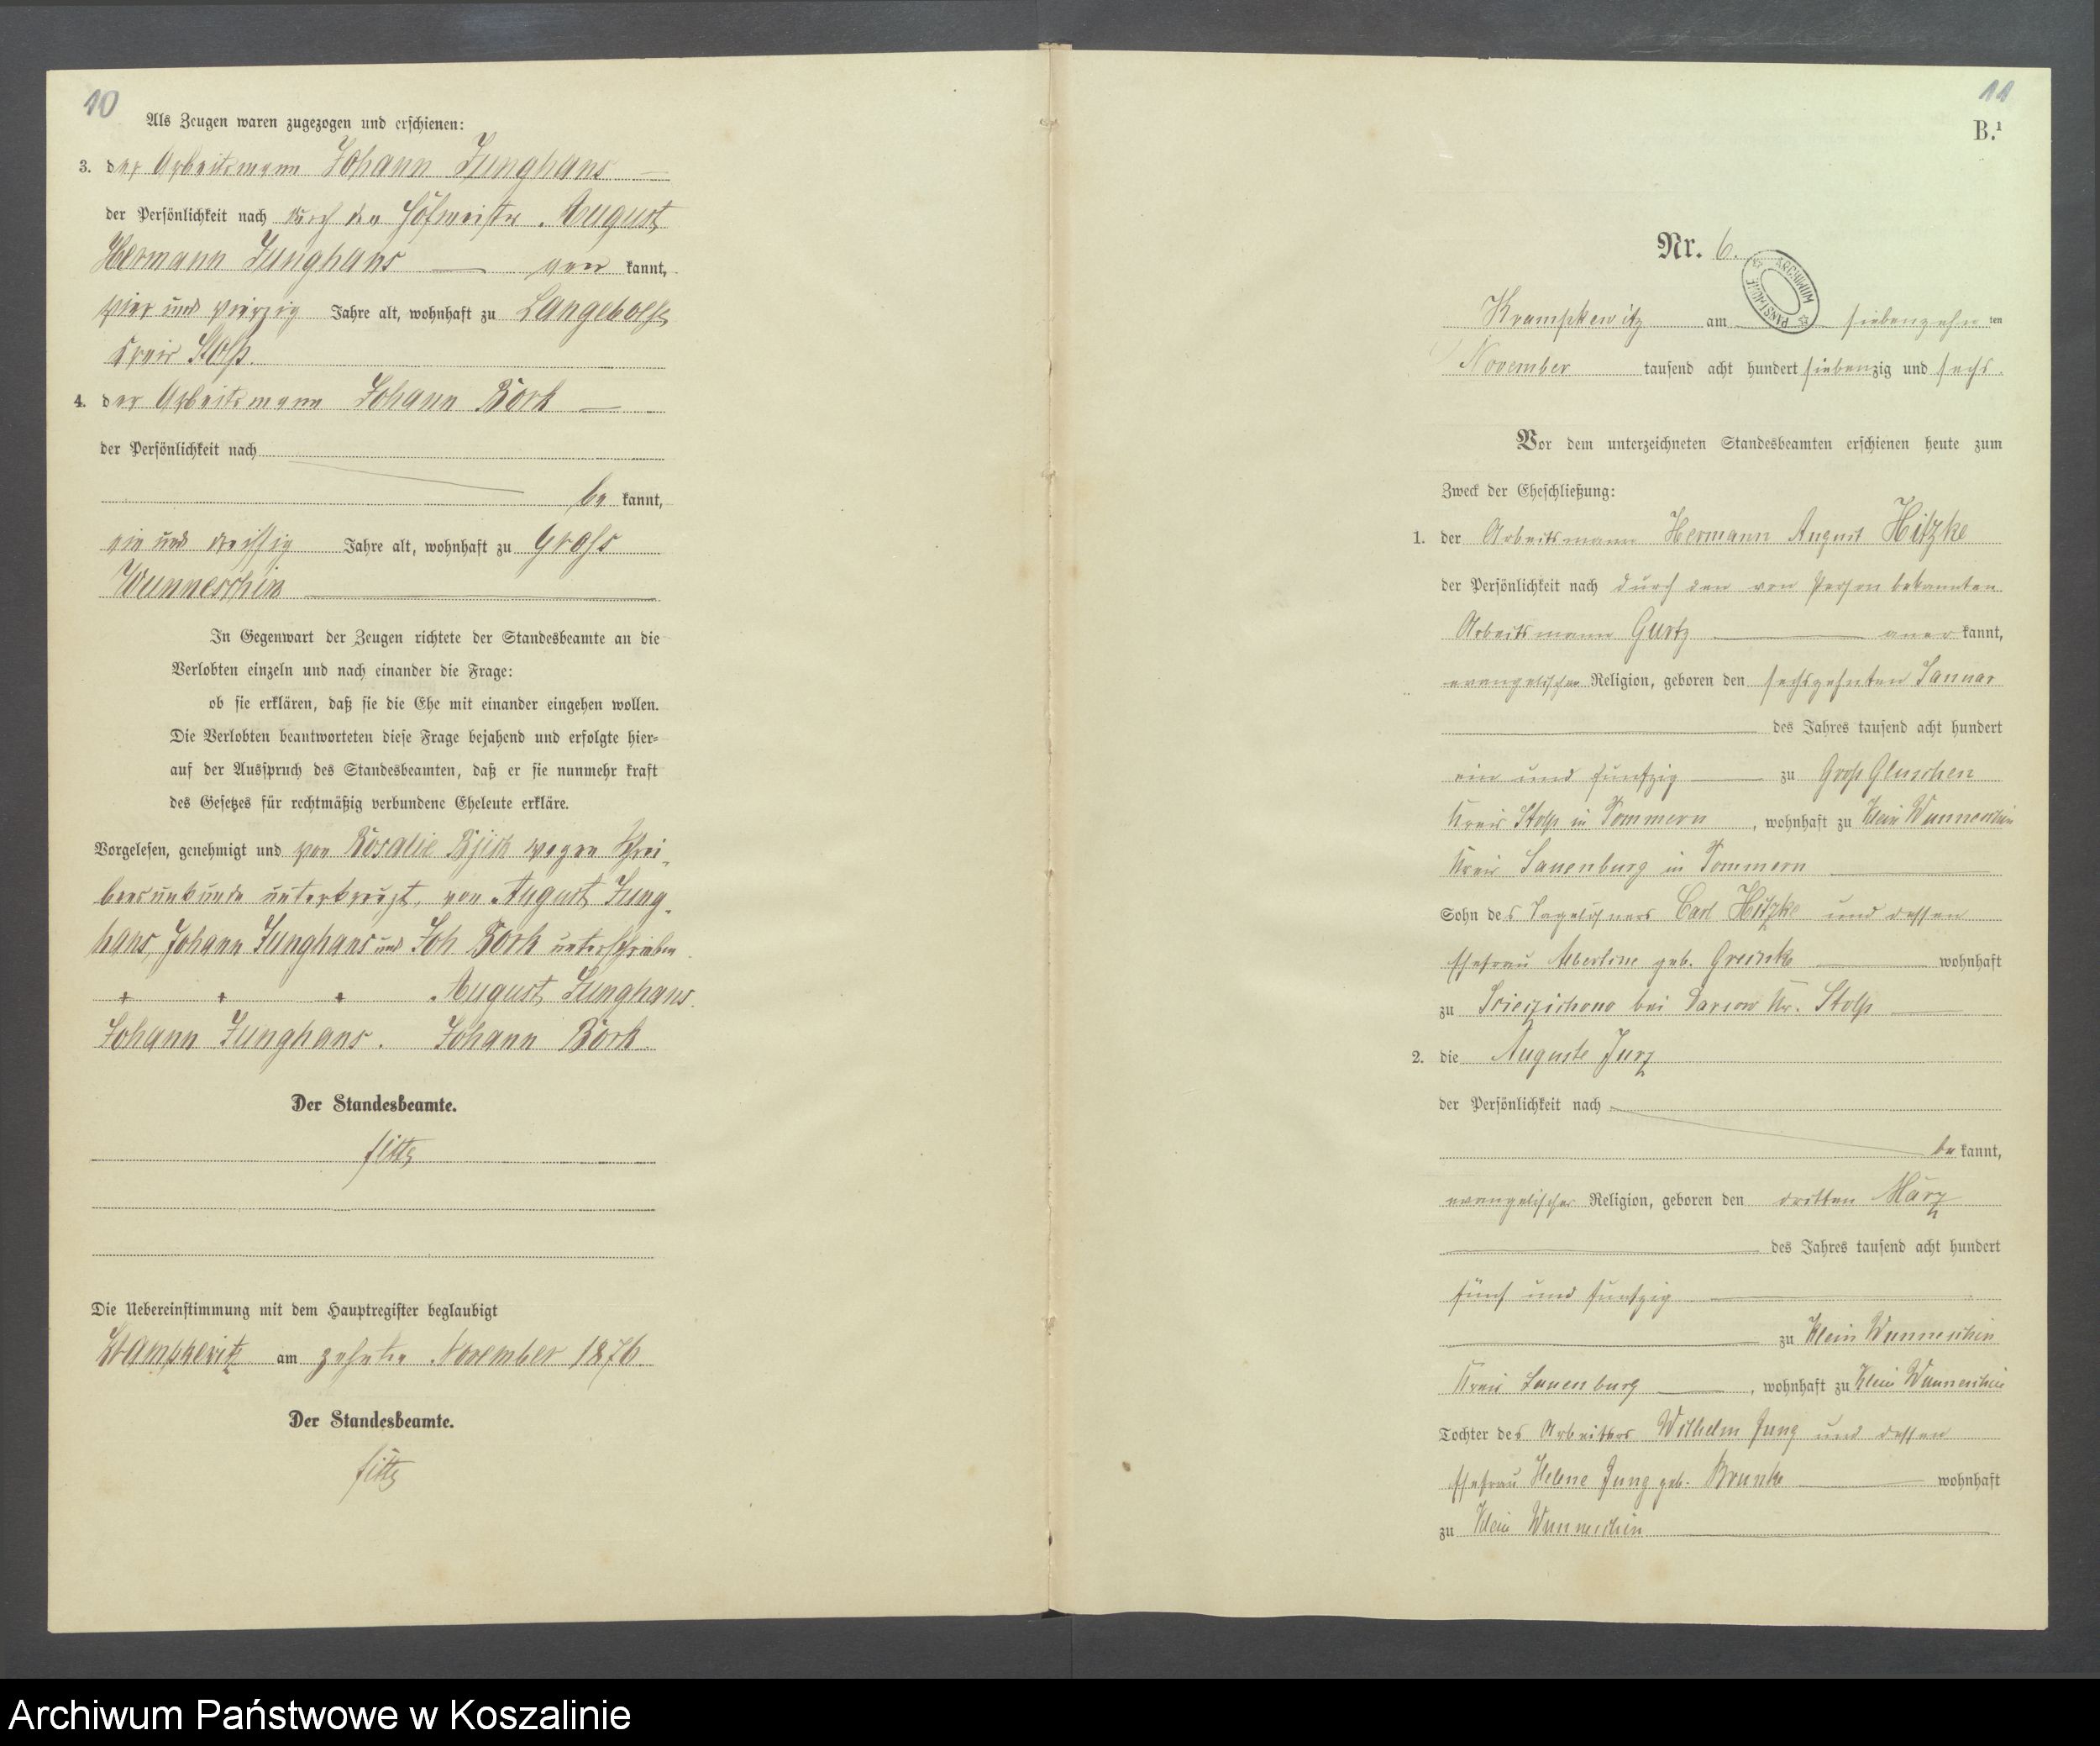 10
Als Zeugen waren zugezogen und erschienen:
3. der Arbeitsmann Johann Junghans
der Persönlichkeit nach durch den Hofmeister August
Hermann Junghans aner kannt,
vier und vierzig Jahre alt, wohnhaft zu Langeböse
Kreis Stolp.
4. der Arbeitsmann Johann Bork
der Persönlichkeit nach
be kannt,
ein und dreissig Jahre alt, wohnhaft zu Gross
Wunneschin
In Gegenwart der Zeugen richtete der Standesbeamte an die
Verlobten einzeln und nach einander die Frage:
ob sie erklären, daß sie die Ehe mit einander eingehen wollen.
Die Verlobten beantworteten diese Frage bejahend und erfolgte hier-
auf der Ausspruch des Standesbeamten, daß er sie nunmehr kraft
des Gesetzes für rechtmäßig verbundene Eheleute erkläre.
Vorgelesen, genehmigt und von Rosalie wegen Schrei-
bensunkunde unterkreuzt, von August Jung-
hans, Johann Junghans und Joh Bork unterschrieben
+ + + August Junghans.
Johann Junghans. Johann Bork.
Der Standesbeamte.
Die Uebereinstimmung mit dem Hauptregister beglaubigt
Krampkewitz am zehnten November 1876.
Der Standesbeamte.
11
B.1
Nr. 6.
ARCHIWUM PAŃSTWOWE
Krampkewitz am siebenzehn ten
November tausend acht hundert siebenzig und sechs.
Vor dem unterzeichneten Standesbeamten erschienen heute zum
Zweck der Eheschließung:
1. der Arbeitsmann Hermann August Hitzke
der Persönlichkeit nach durch den von Person bekannten
Arbeitsmann Gurtz aner kannt,
evangelischer Religion, geboren den sechszehnten Januar
des Jahres tausend acht hundert
ein und funfzig zu Groß Gluschen
Kreis Stolp in Pommern, wohnhaft zu Klein Wunneschin
Kreis Lauenburg in Pommern
Sohn des Tagelöhners Carl Hitzke und dessen
Ehefrau Albertine geb. wohnhaft
zu bei Darsow Kr. Stolp
2. die Auguste Jurz
der Persönlichkeit nach
be kannt,
evangelischer Religion, geboren den dritten März
des Jahres tausend acht hundert
fünf und funfzig
zu Klein Wunneschin
Kreis Lauenburg, wohnhaft zu Klein Wunneschin
Tochter des Arbeiters Wilhelm Jung und dessen
Ehefrau Helene Jung geb. Brunke wohnhaft
zu Klein Wunneschin
Archiwum Państwowe w Koszalinie